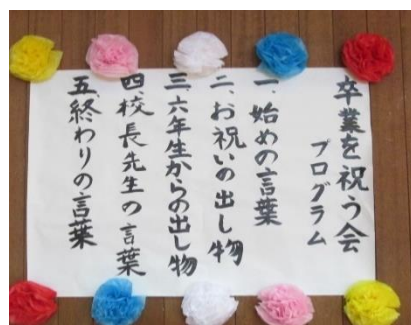 卒業を祝う会
プログラム
一、始めの言葉
二、お祝いの出し物
三、六年生からの出し物
四、校長先生の言葉
五、終わりの言葉